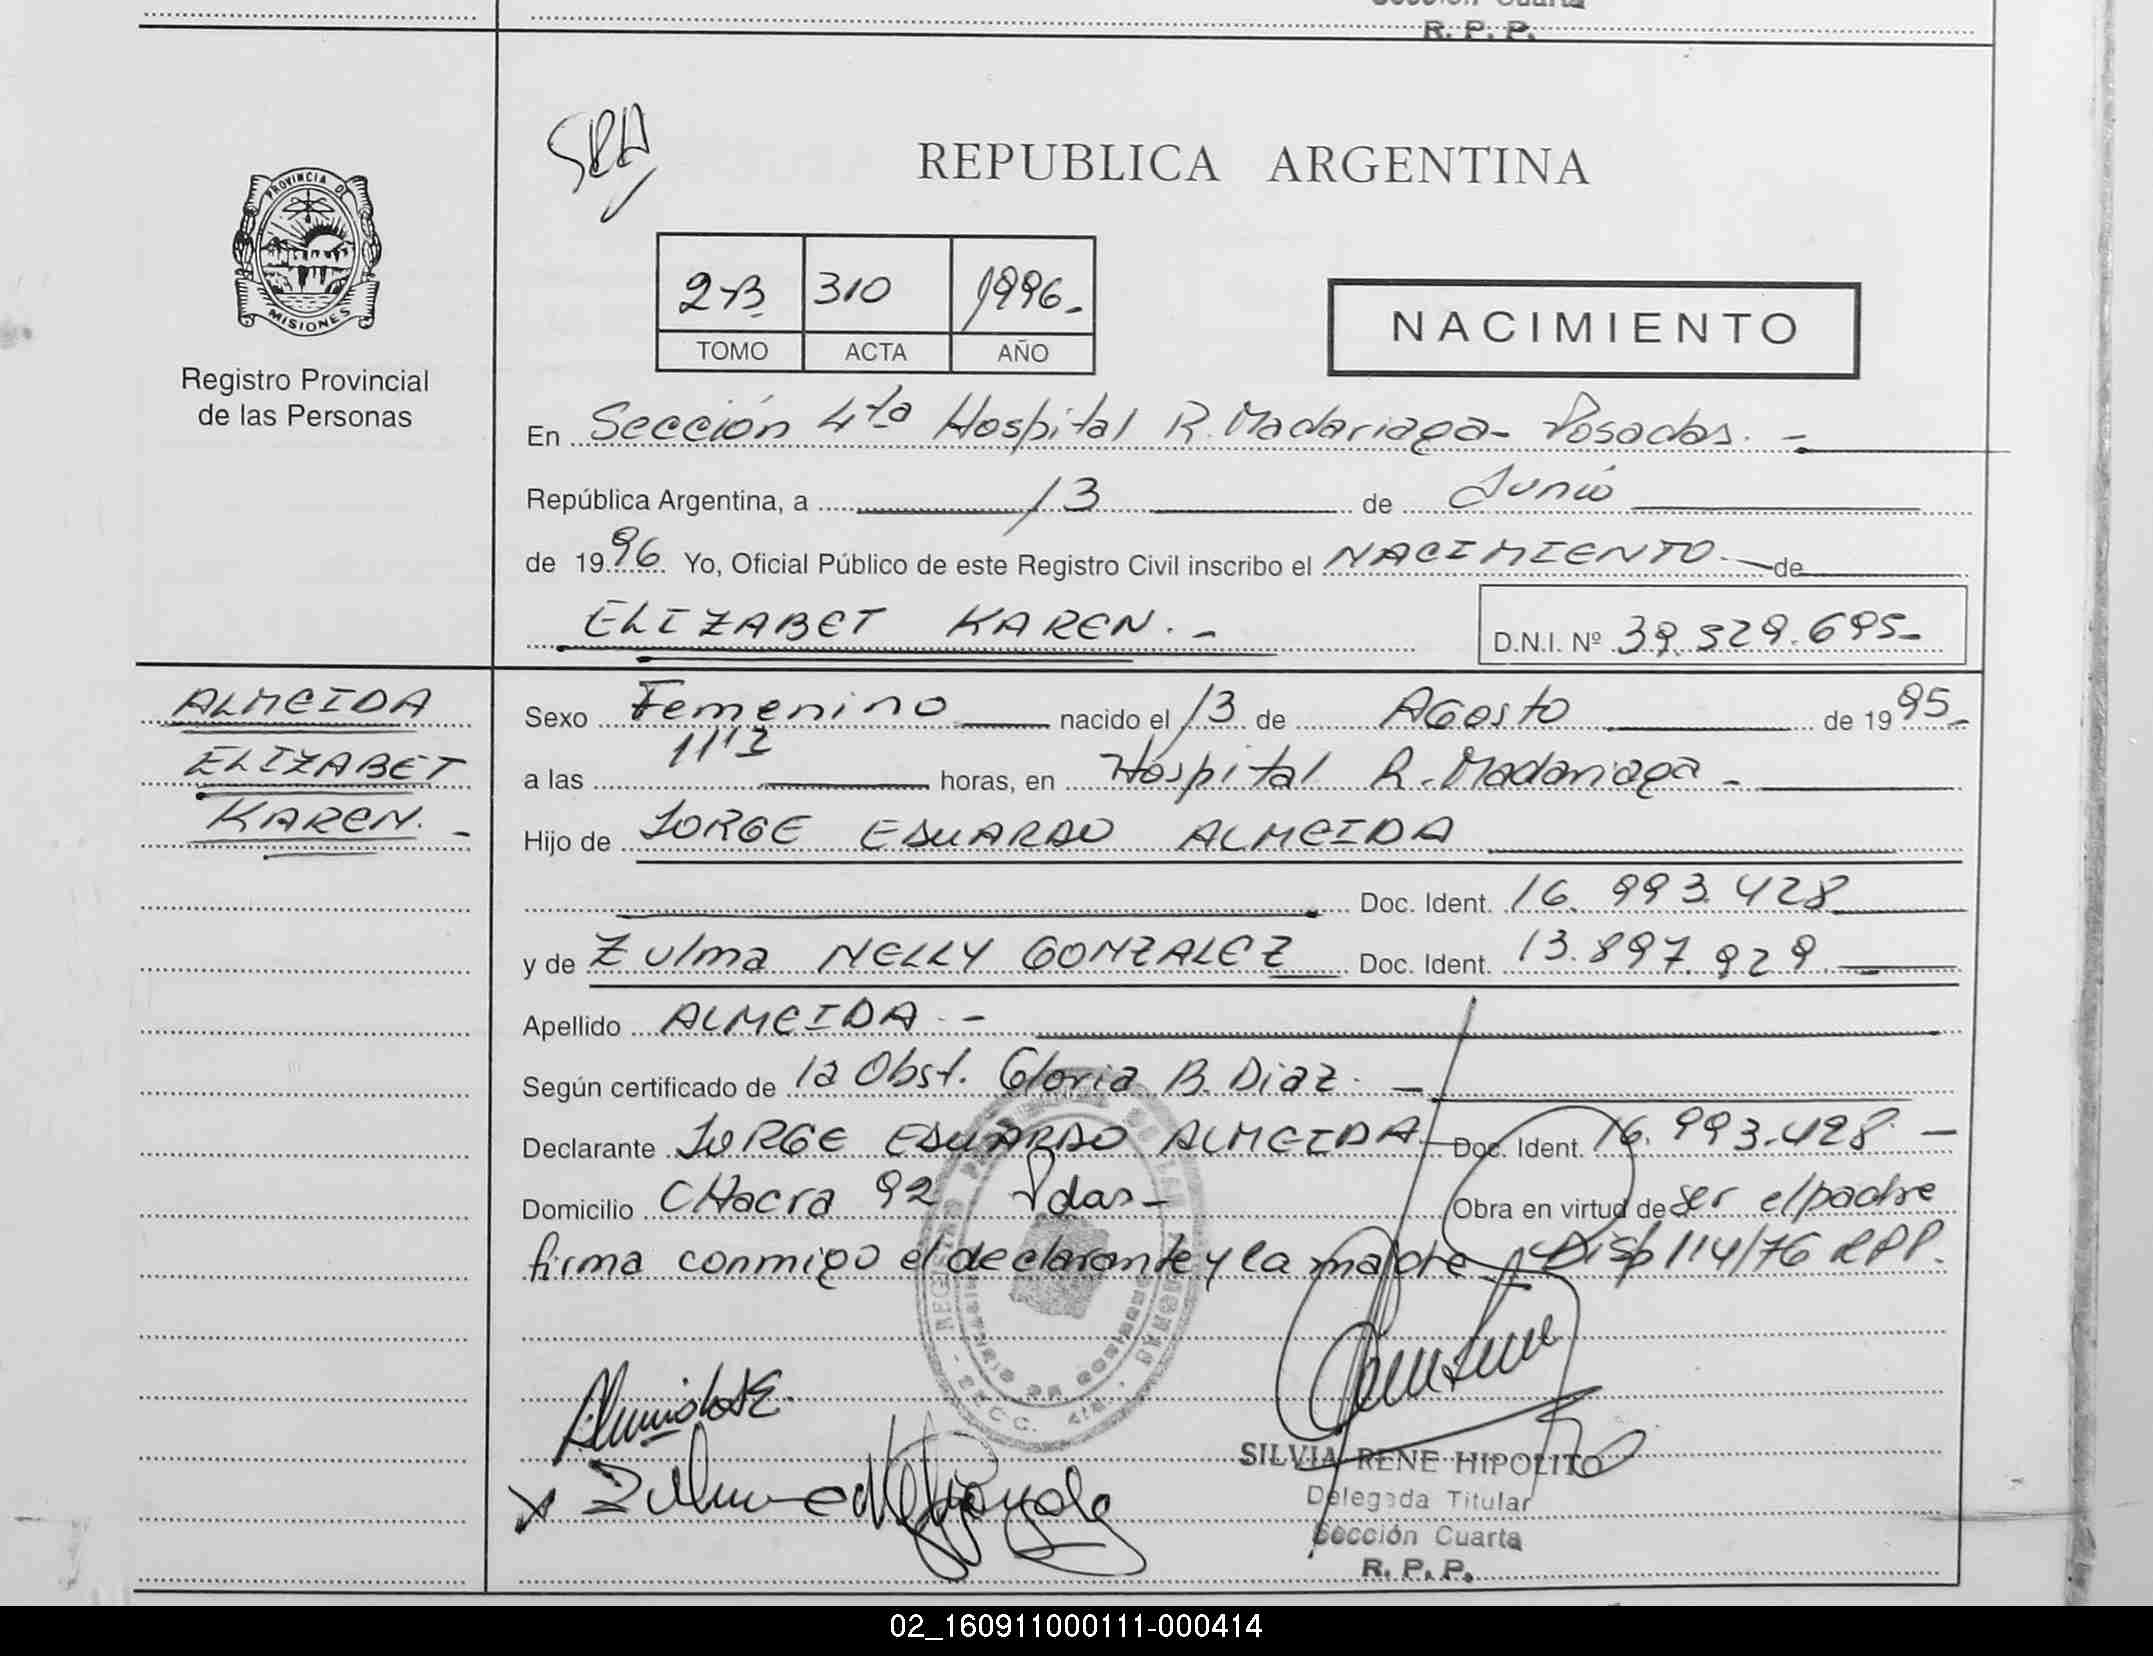 R. P. P.
SRH
REPUBLICA ARGENTINA
PROVINCIA DE
MISIONES
Registro Provincial
de las Personas
2-B 310 1996.-
TOMO ACTA AÑO
NACIMIENTO
En Sección 4ta Hospital R. Madariaga - Posadas. -
República Argentina, a 13 de Junio
de 1996 Yo, Oficial Público de este Registro Civil inscribo el NACIMIENTO de
ELIZABET KAREN. -
D.N.I. Nº 39.529.695-
ALMEIDA
ELIZABET
KAREN. -
Sexo Femenino nacido el 13 de Agosto de 1995-
a las horas, en Hospital R. Madariaga -
Hijo de JORGE EDUARDO ALMEIDA
Doc. Ident. 16.993.428
y de Zulma NELLY GONZALEZ Doc. Ident. 13.897.929
Apellido ALMEIDA. -
Según certificado de la Obst. Gloria B. Diaz. -
Declarante JORGE EDUARDO ALMEIDA Doc. Ident. 16.993.428. -
Domicilio CHacra 92 Pdas- Obra en virtud de ser el padre
firma conmigo el declarante y la madre Disp 114/76 RPP.
SILVIA RENE HIPOLITO
Delegada Titular
Sección Cuarta
R. P. P.
02_160911000111-000414